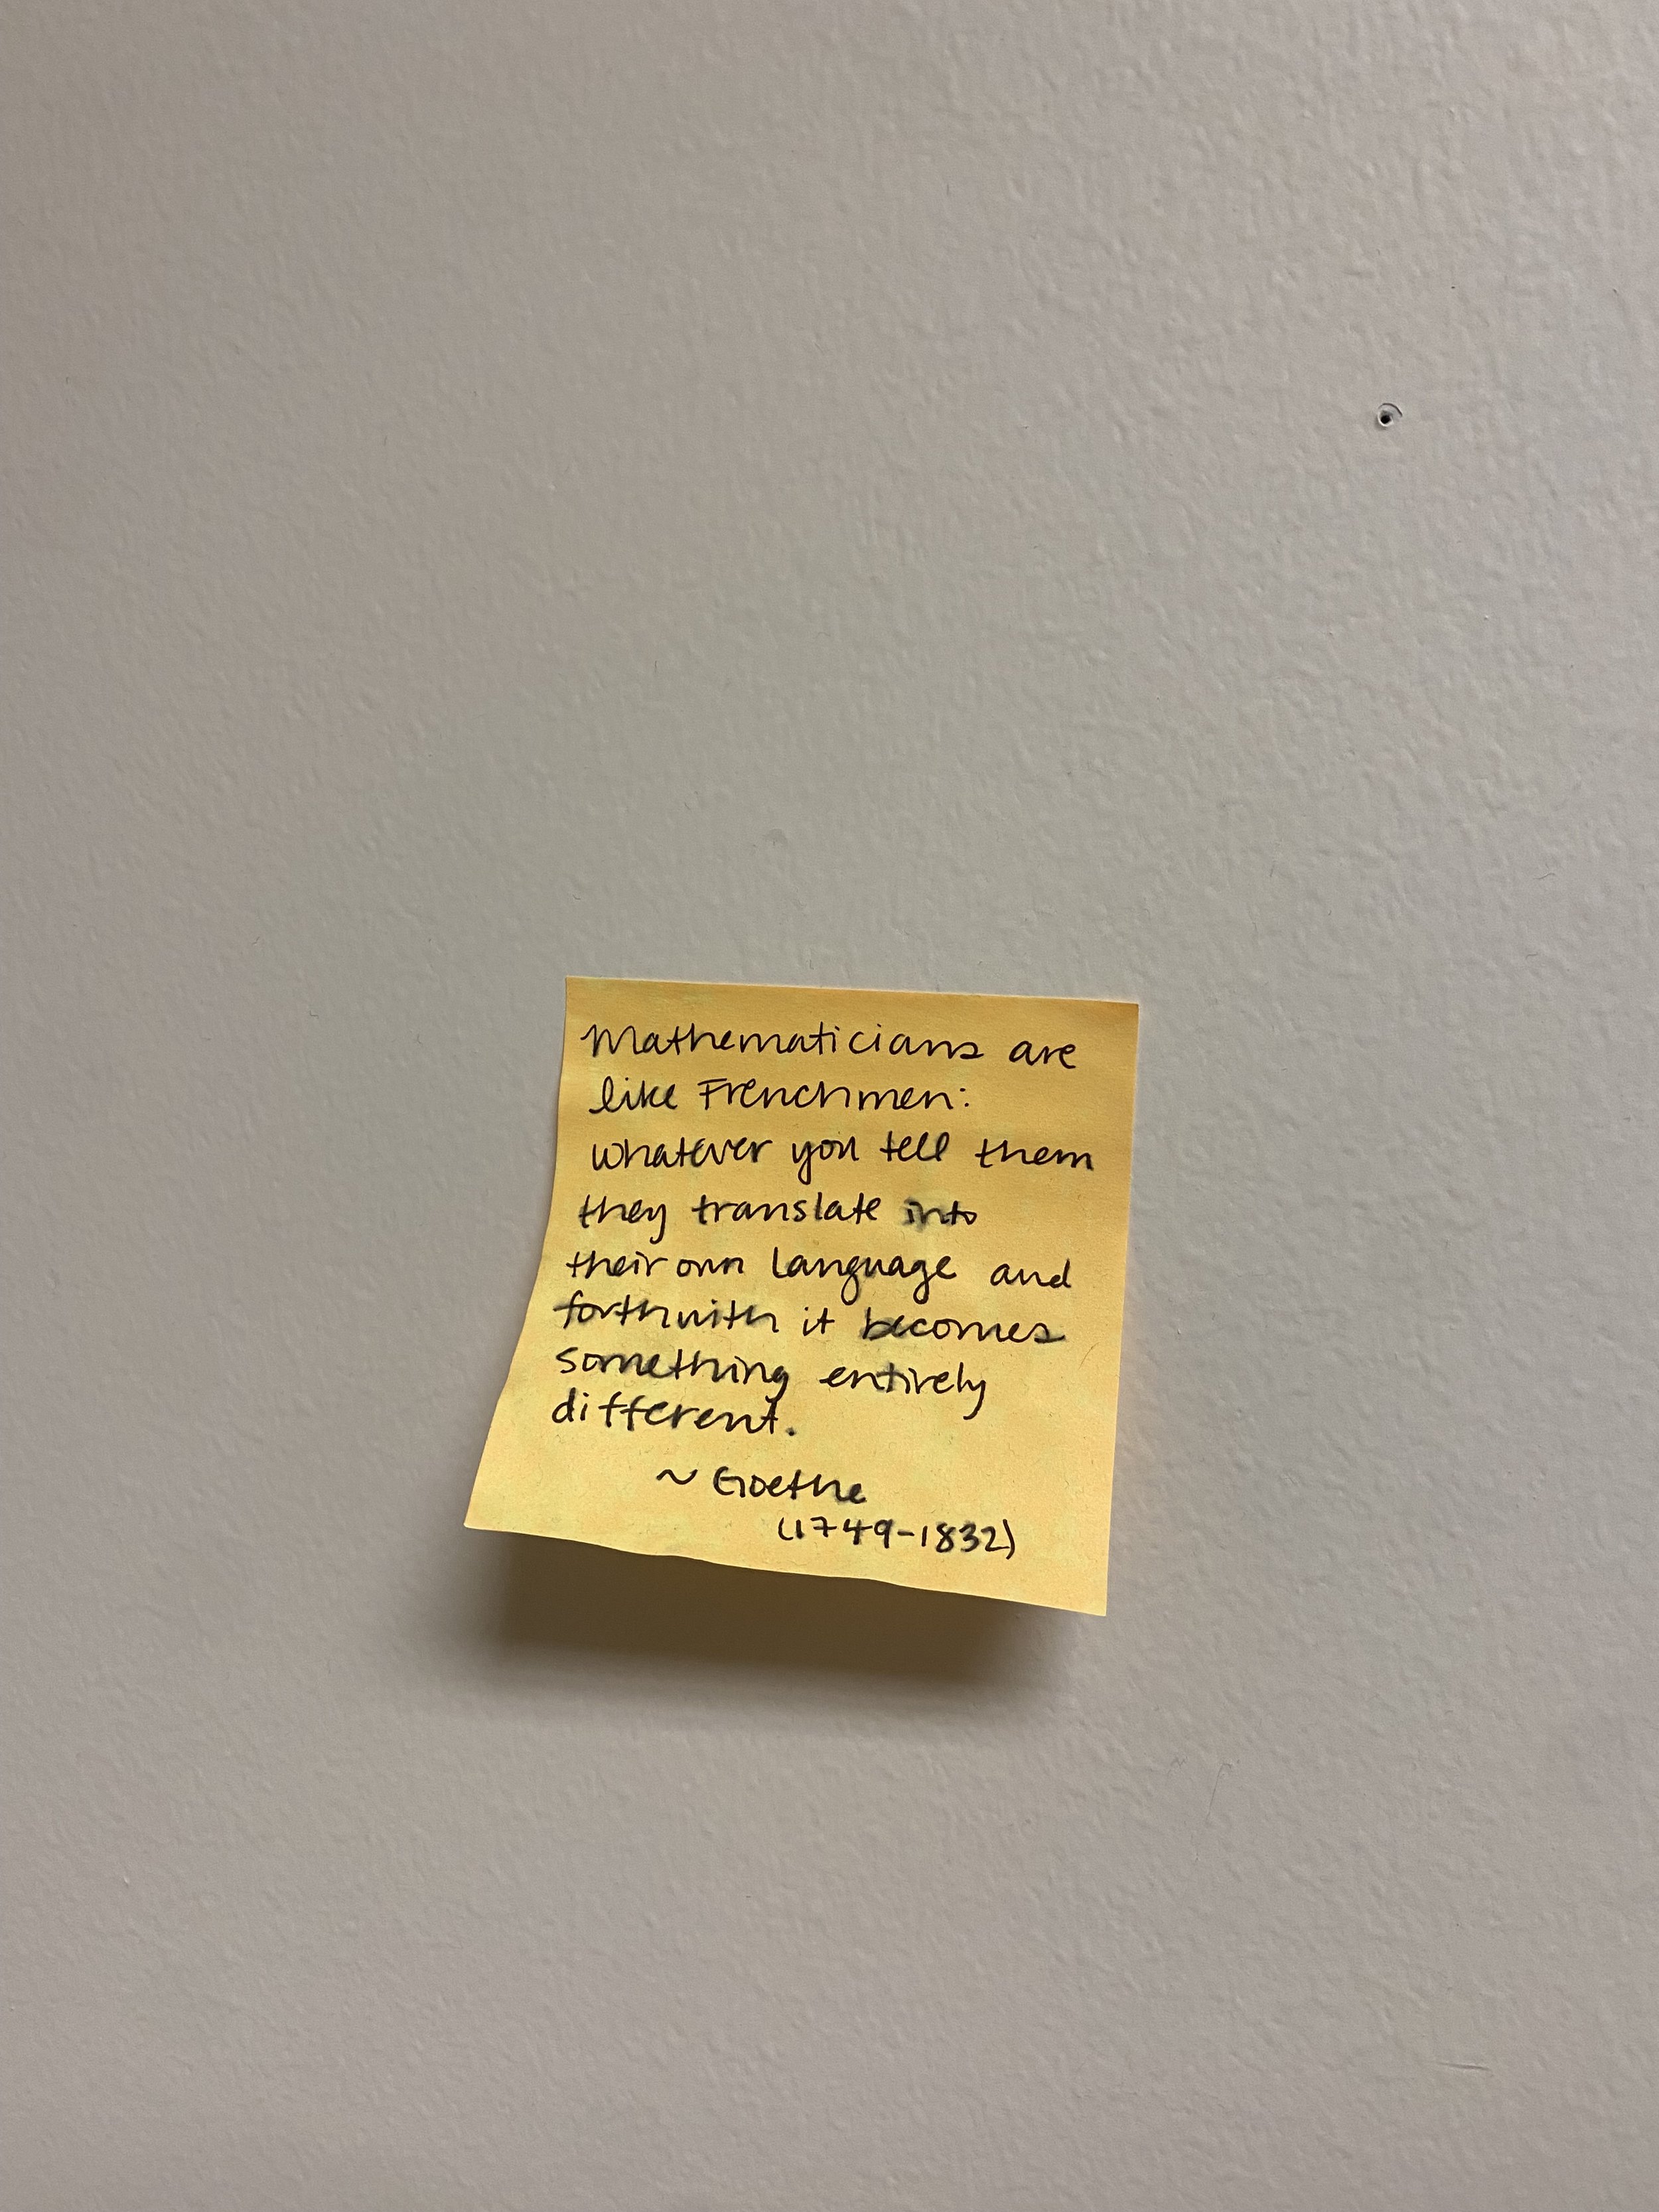 Mathematicians are
like Frenchmen:
whatever you tell them
they translate into
their own language and
forthwith it becomes
something entirely
different.
~ Goethe
(1749-1832)